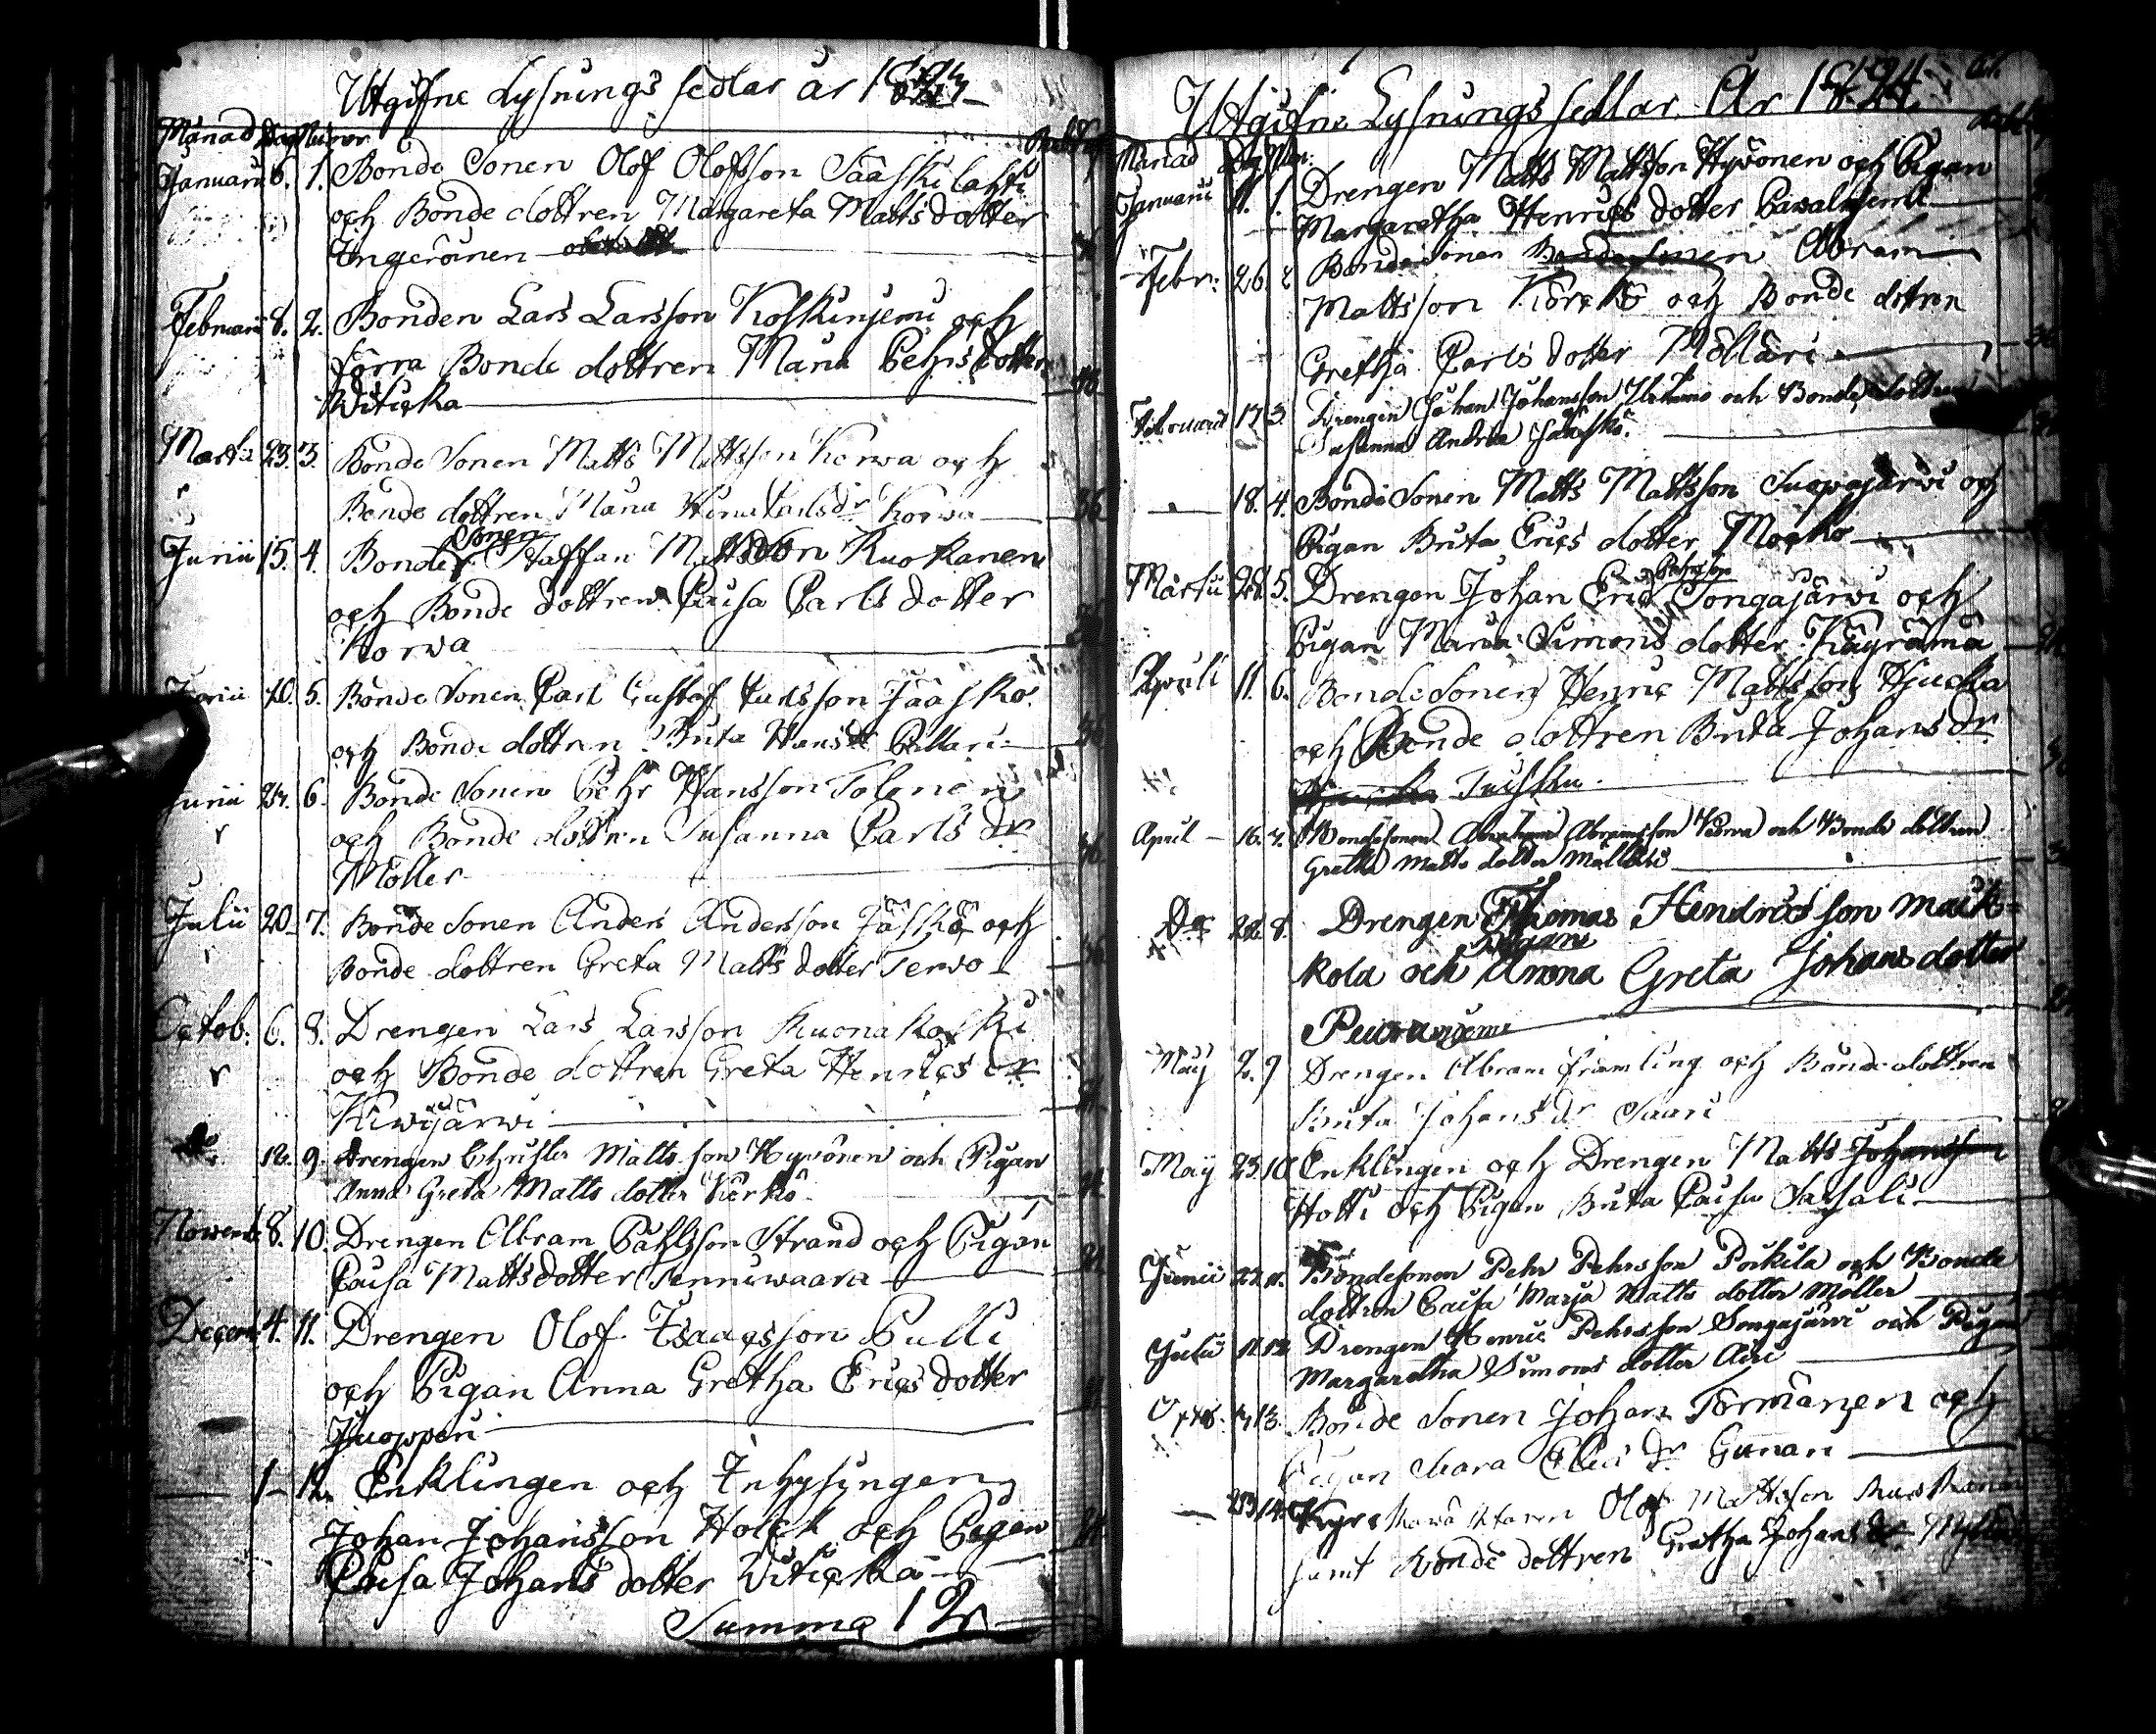 Utgifne Lysnings sedlar år 1823
Månad Dag Numer
Januarii 6. 1. Bonde Sonen Olof Olofsson Sääskilahti
och Bonde dottren Margareta Matts dotter
Ingeröinen
Februarii 8. 2. Bonden Lars Larsson Koskinjemi och
förra Bonde dottren Maria Pehrs dotter
Witicka 48
Martii 23. 3. Bonde Sonen Matts Mattsson Korwa och
Bonde dottren Maria dr Korwa 36
Junii 15. 4. Bonde Sonen Staffan Mattsson Ruokanen
och Bonde dottren Caisa Carls dotter
Korwa 36
Junii 20. 5. Bonde Sonen Carl Gustaf Carlsson Jääskö
och Bonde dottren Brita Hans dr Pallari 36
Junii 24. 6. Bonde Sonen Pehr Hansson Tolonen
och Bonde dottren Susanna Carls dr
Möller 36
Julii 20. 7. Bonde Sonen Anders Andersson Jäskö och
Bonde dottren Greta Matts dotter Terwo 36
Octob: 6. 8. Drengen Lars Larsson Kuonakoski
och Bonde dottren Greta Henrics dr
Kiwijärwi 24
12. 9. Drengen Christer Matts son Hyvönen och Pigan
Anna Greta Matts dotter Kerkö
Novemb. 8. 10. Drengen Abram Påhlsson Strand och Pigan
Caisa Matts dotter Sennuwaara 24
Decem: 4. 11. Drengen Olof Isaacsson Pulli
och Pigan Anna Gretha Erics dotter
Juopperi
1 12. Enklingen och Inhysingen
Johan Johansson Holck och Pigan
Caisa Johans dotter Witicka
Summa 12
Utgifne Lysnings sedlar År 1824
Månad Dag Nu:
Januarii 11. 1. Drengen Matts Mattsson Hyvönen och Pigan
Margaretha Henrics dotter Pawalnjemi
Febr: 26. 2 Bonde Sonen Abram
Mattsson Körckö och Bonde dottren
Gretha Carls dotter Möllari
Februarii 17 3. Drengen Johan Johansson och Bonde dottren
Susanna Andrea Jääskö
18. 4. Bonde Sonen Matts Mattsson Suopajärwi och
Pigan Brita Erics dotter Mocko
Martii 28. 5. Drengen Johan Eric Pehrsson Songajärwi och
Pigan Maria Simons dotter Käyrämä 24
Aprili 11. 6. Bonde Sonen Henric Mattsson Hjucka
och Bonde dottren Brita Johans dr
Tuisku
April 16. 7. Bondesonen Abraham Abramsson Korva och Bonde dottren
Gretha Matts dotter Mällari
Do 28. 8. Drengen Thomas Hendricsson Maik-
kola och Pigan Anna Greta Johans dotter
Peurasjemi
May 2. 9 Drengen Abram Främling och Bonde dottren
Brita Johans dr Saari
May 23. 10 Enklingen och Drengen Matts Johansson
Hotti och Pigan Brita Caisa Sassali
Junii 22. 11. Bondesonen Pehr Pehrsson Porkila och Bonde
dottren Caisa Marja Matts dotter Möller
Julii 11. 12 Drengen Henric Pehrsson Songajärvi och Pigan
Margaretha Simons dotter Airi
13. Bonde Sonen Johan Törmänen och
Pigan Clara Elias dr Gunnari
23 14. Kyrckowäktaren Olof Mattsson Ruokanen
samt Bonde dottren Gretha Johans dr